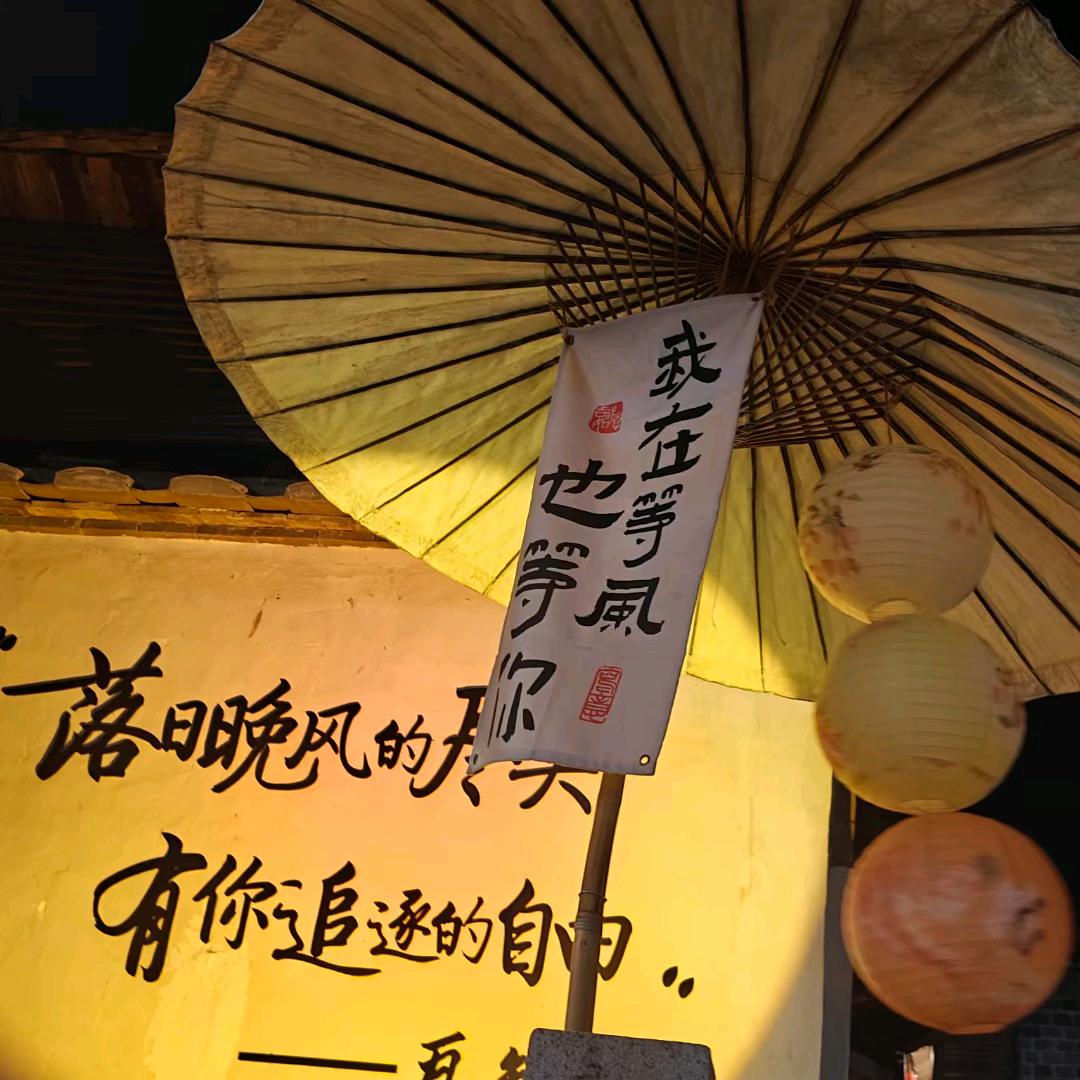 我在等風
也等你
“落日晚风的尽头
有你追逐的自由”